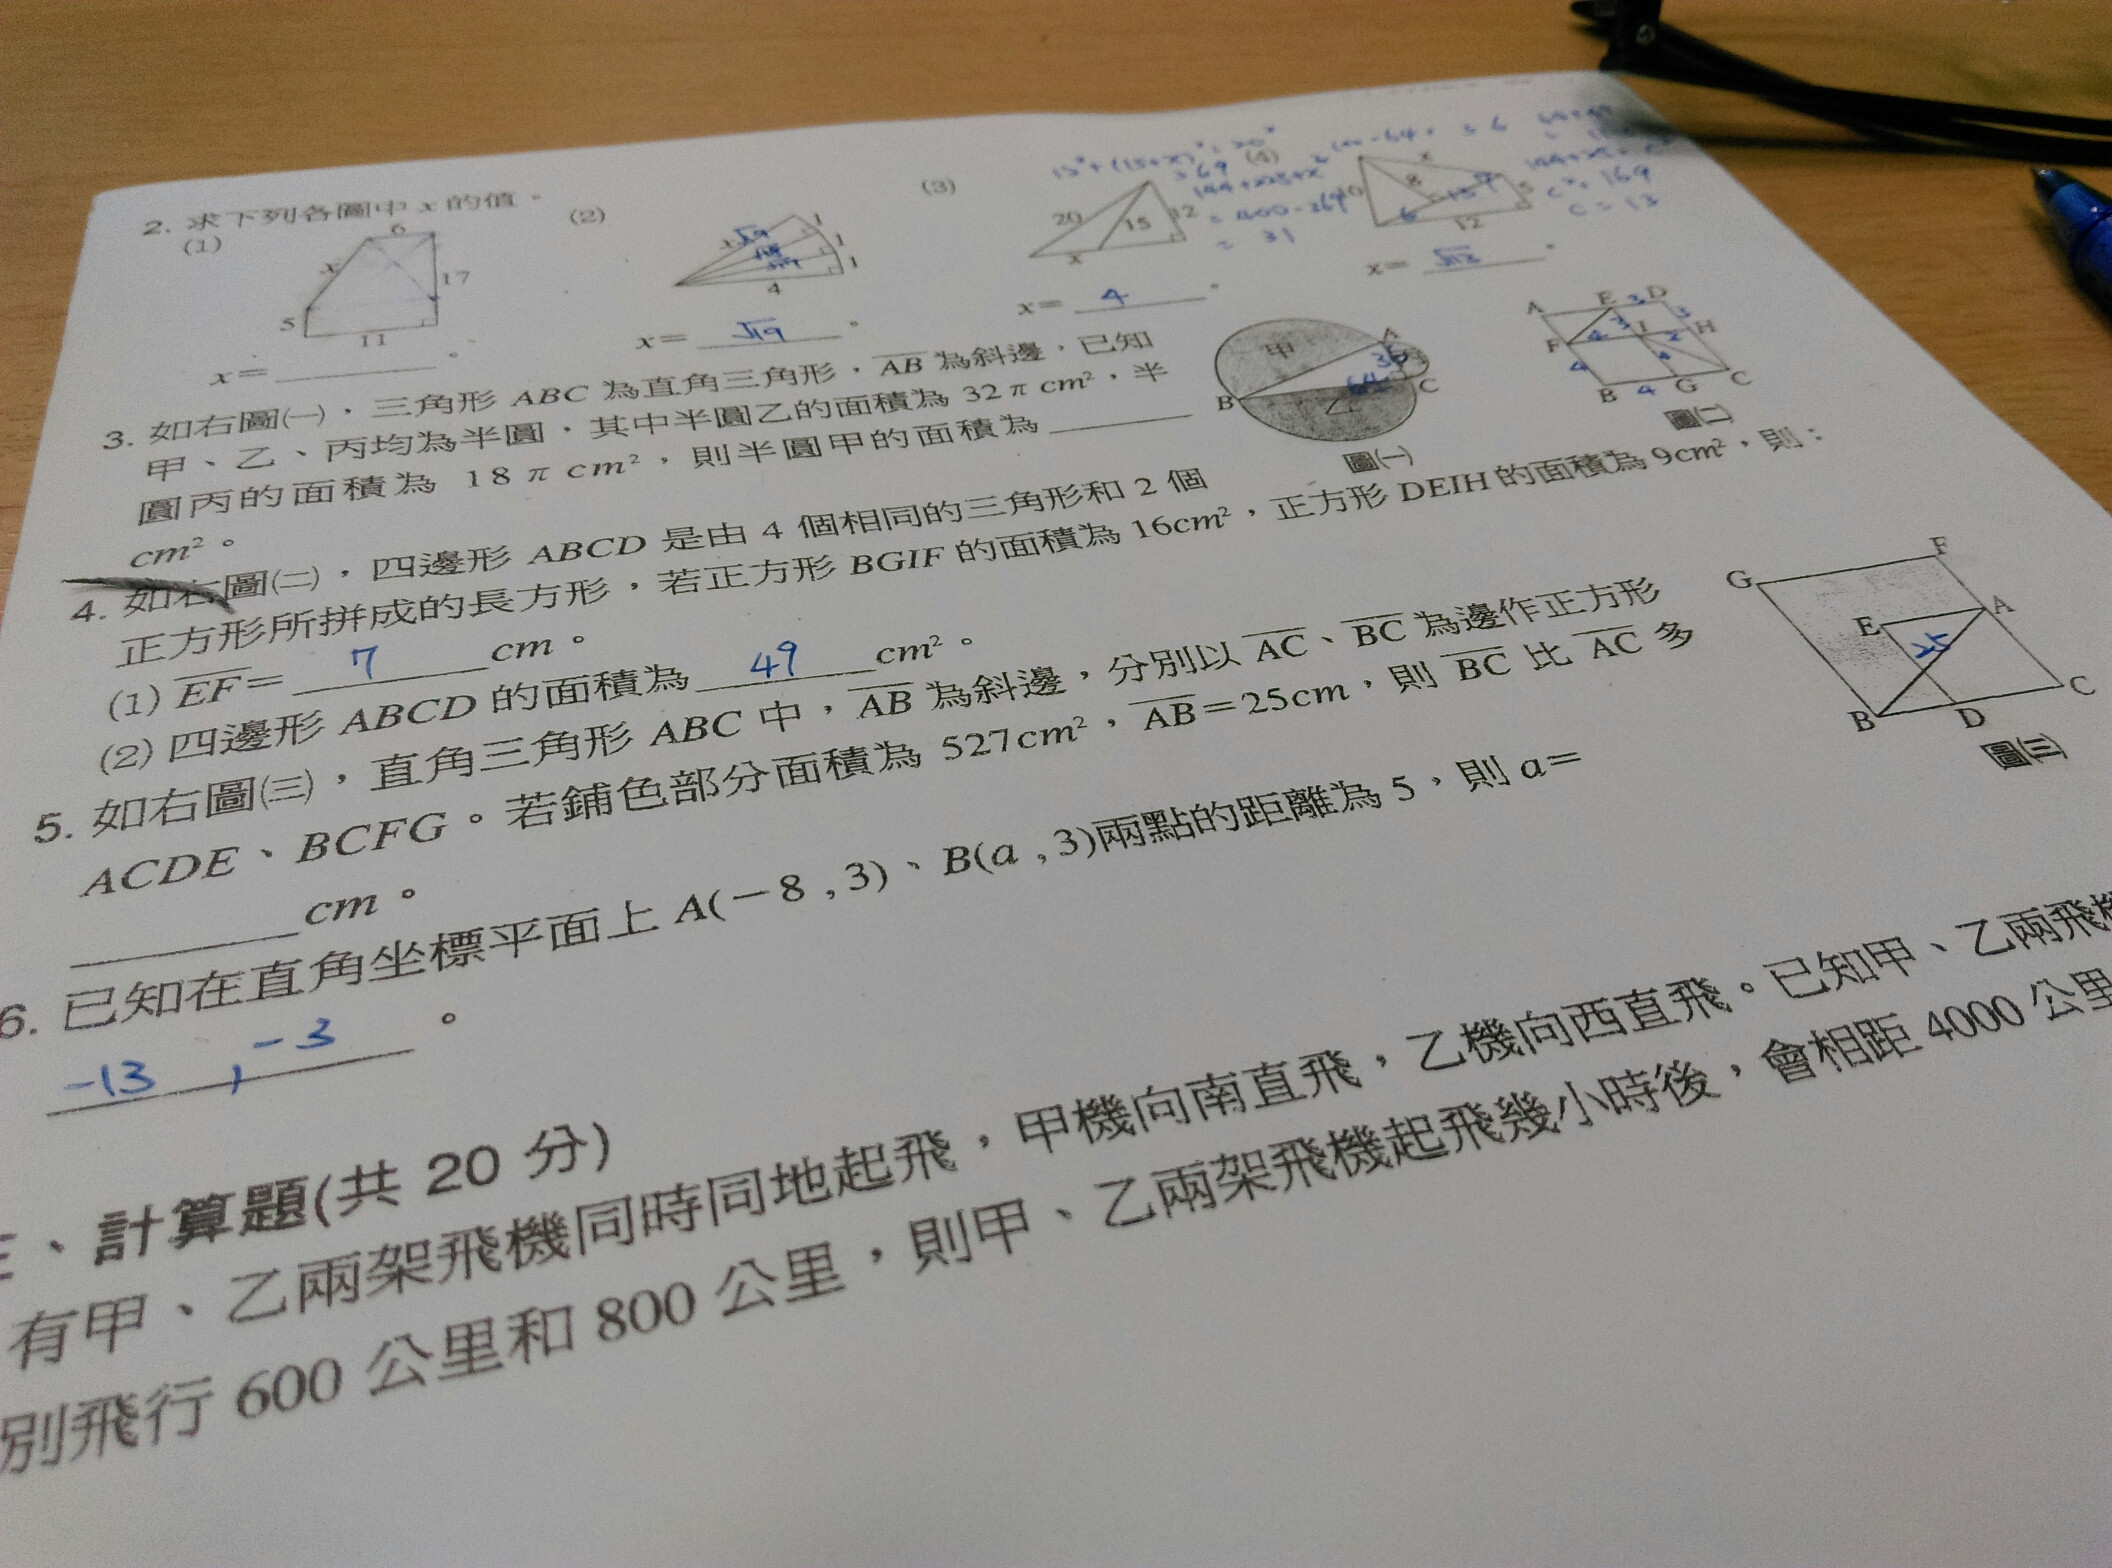 2. 求下列各圖中 x 的值。
(1) (2) (3) (4)
6 x 17 5 11
x √19 √18 √17 1 1 1 4
20 15 12 x
x 8 10 6 5 12
= 400-369
= 31
144+25=c²
c²=169
c=13
x=
x= √19 。
x= 4 。
x= 。
3. 如右圖㈠,三角形 ABC 為直角三角形,AB 為斜邊,已知
甲、乙、丙均為半圓,其中半圓乙的面積為 32π cm²,半
圓丙的面積為 18π cm²,則半圓甲的面積為
cm²。
甲 乙 A B C 36 64
圖㈠
A E 3 D 3 H I F 4 4 B 4 G C
圖㈡
4. 如右圖㈡,四邊形 ABCD 是由 4 個相同的三角形和 2 個
正方形所拼成的長方形,若正方形 BGIF 的面積為 16cm²,正方形 DEIH 的面積為 9cm²,則:
(1) EF= 7 cm。
(2) 四邊形 ABCD 的面積為 49 cm²。
5. 如右圖㈢,直角三角形 ABC 中,AB 為斜邊,分別以 AC、BC 為邊作正方形
ACDE、BCFG。若鋪色部分面積為 527cm²,AB=25cm,則 BC 比 AC 多
cm。
G F E A 25 B D C
圖㈢
6. 已知在直角坐標平面上 A(-8,3)、B(a,3)兩點的距離為 5,則 a=
-13 , -3 。
、計算題(共 20 分)
有甲、乙兩架飛機同時同地起飛,甲機向南直飛,乙機向西直飛。已知甲、乙兩飛機
別飛行 600 公里和 800 公里,則甲、乙兩架飛機起飛幾小時後,會相距 4000 公里